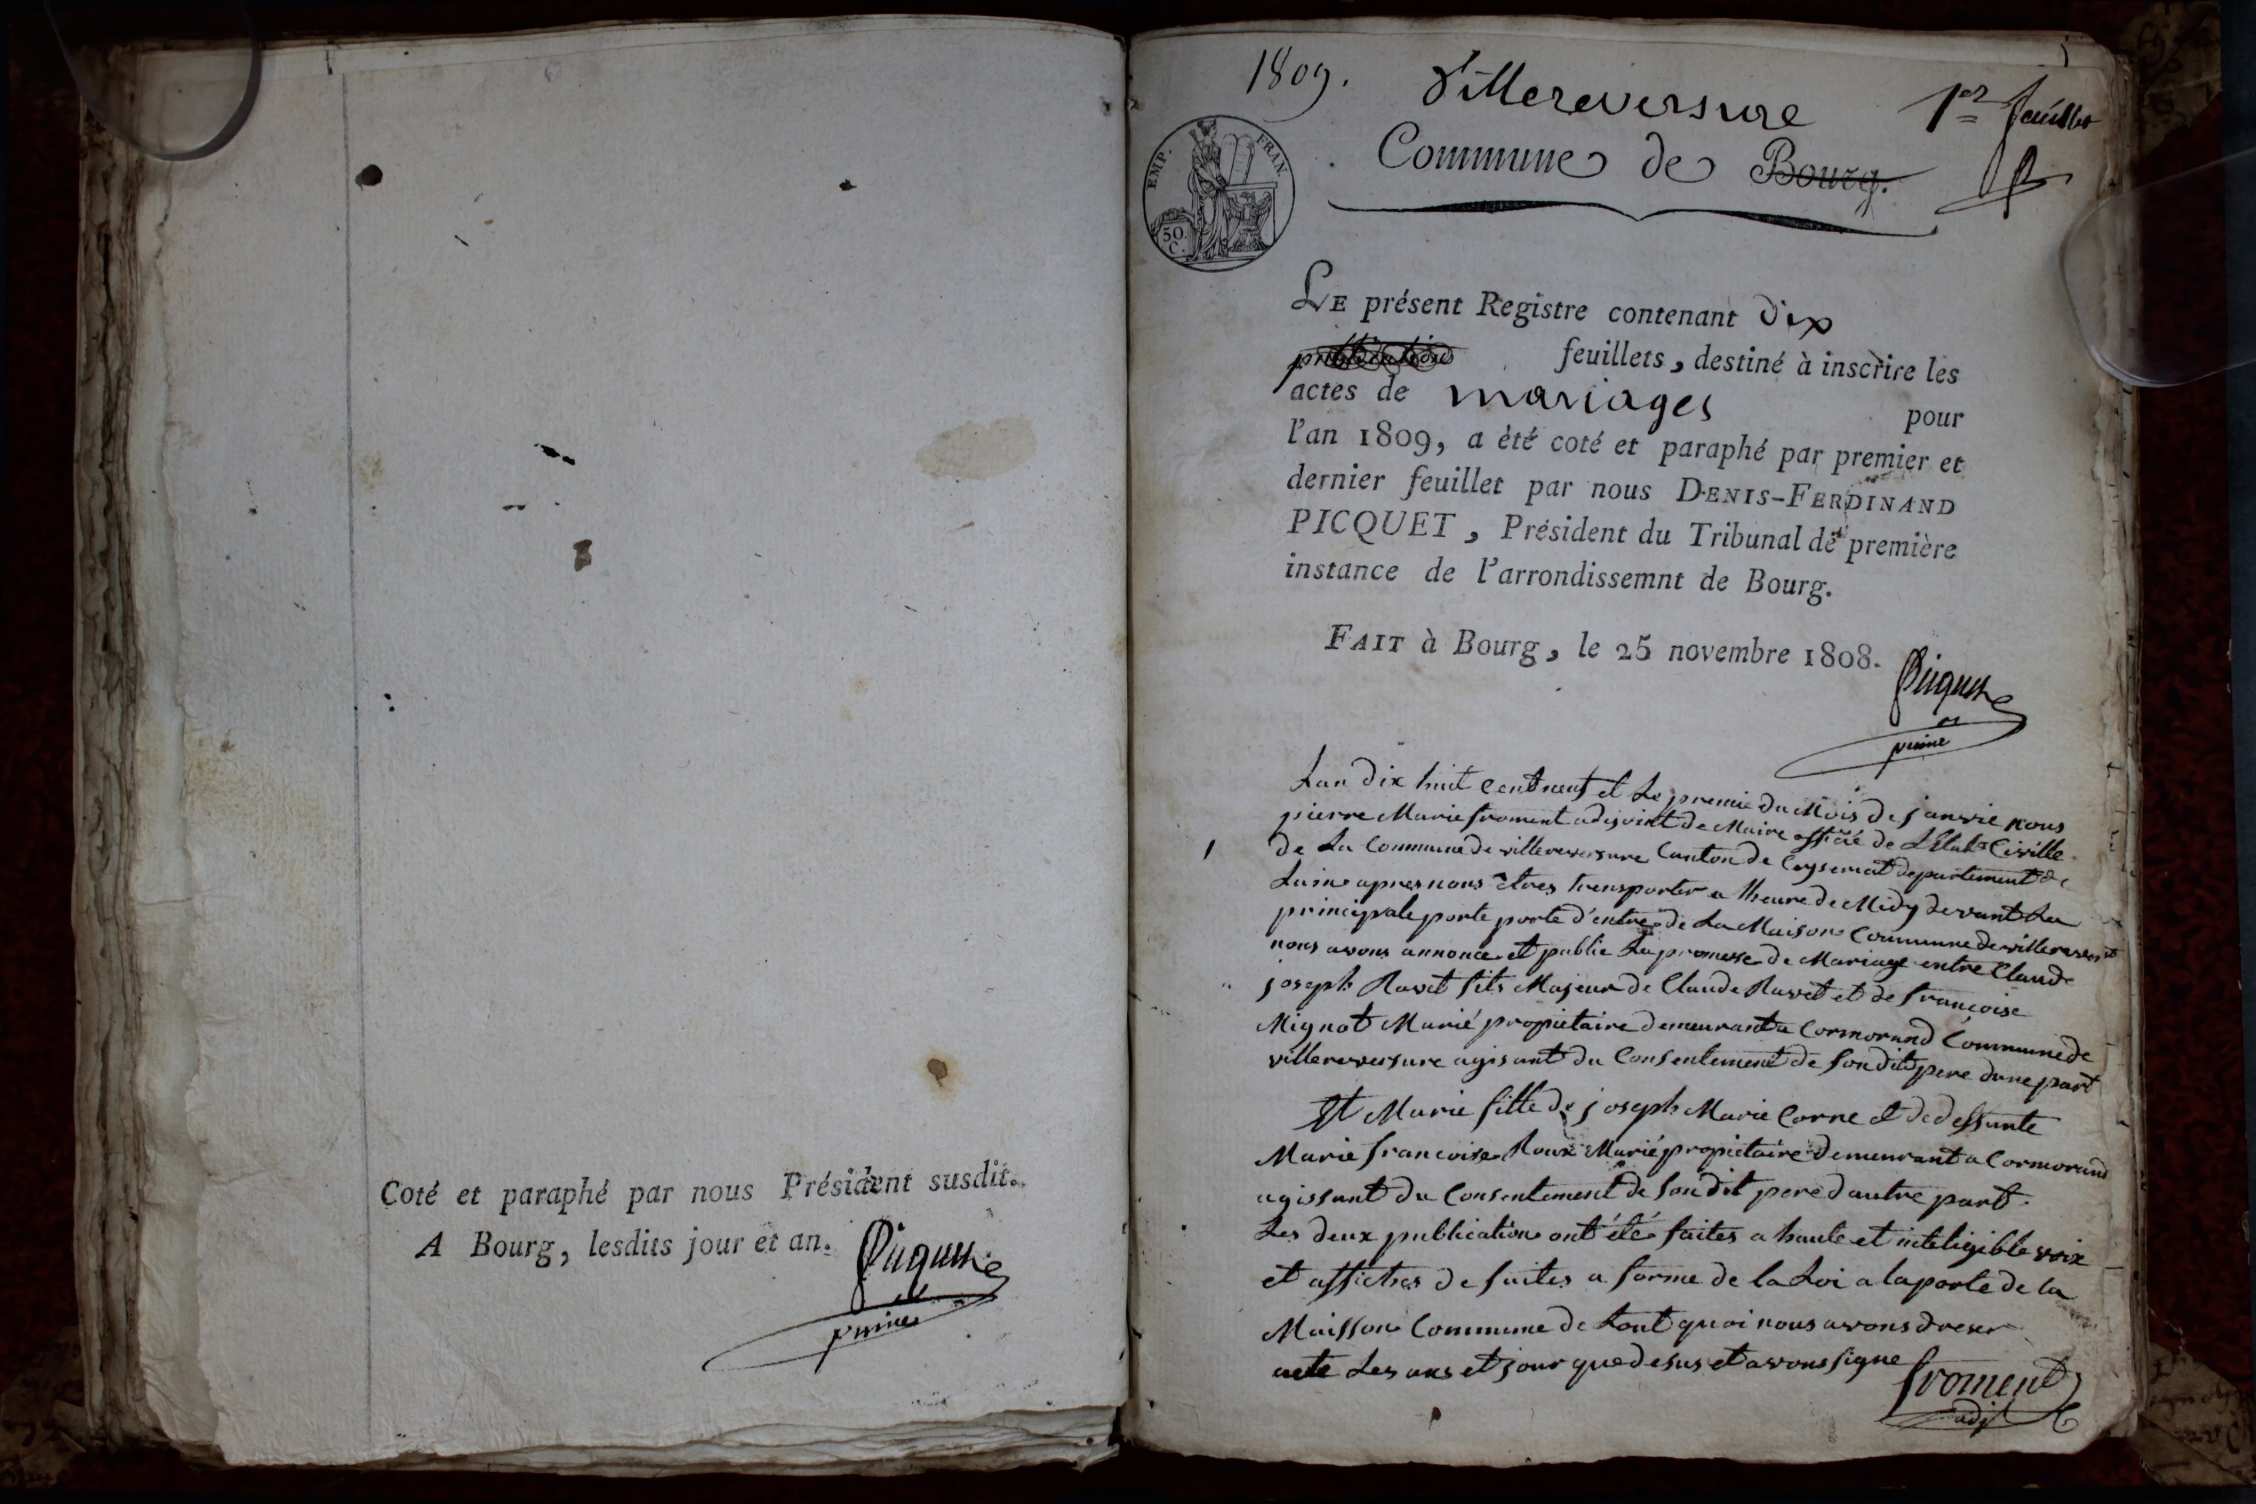 Coté et paraphé par nous Président susdit.
A Bourg, lesdits jour et an.
Picquet
1809.
Villereversure
1er feuillet
Commune de Bourg.
EMP. FRAN.
50.
C.
LE présent Registre contenant dix
publication feuillets, destiné à inscrire les
actes de mariages pour
l'an 1809, a été coté et paraphé par premier et
dernier feuillet par nous DENIS-FERDINAND
PICQUET, Président du Tribunal de première
instance de l'arrondissemnt de Bourg.
FAIT à Bourg, le 25 novembre 1808.
Picquet
Lan dix huit cent neuf et Le premie du Mois de janvie nous
pierre Marie froment adisoint de Maire officié de L'Etat Civille
1
de La Commune de villereversure Canton de Ceyseriat departement de
Lain apres nous êtres transporter a lheure de Midy devant La
principale porte porte d'entre de La Maison Commune de villerevers
nous avons annonce et publie La promesse de Mariage entre Claude
joseph Ravet fils Majeur de Claude Ravet et de francoise
Mignot Marié propietaire demeurant a Cormorand Commune de
villereversure agisant du Consentement de Sondit pere dune part
Et Marie fille de joseph Marie Corne et de deffunte
Marie francoise Roux Marié propietaire demeurant a Cormorand
agissant du Consentement de Son dit pere dautre part.
Les deux publication ont été faites a haute et inteligible voix
et affiches de suites a forme de la Loi a la porte de la
Maisson Commune de tout quoi nous avons dreser
acte Les ans et jour que desus et avons signe
froment
adj